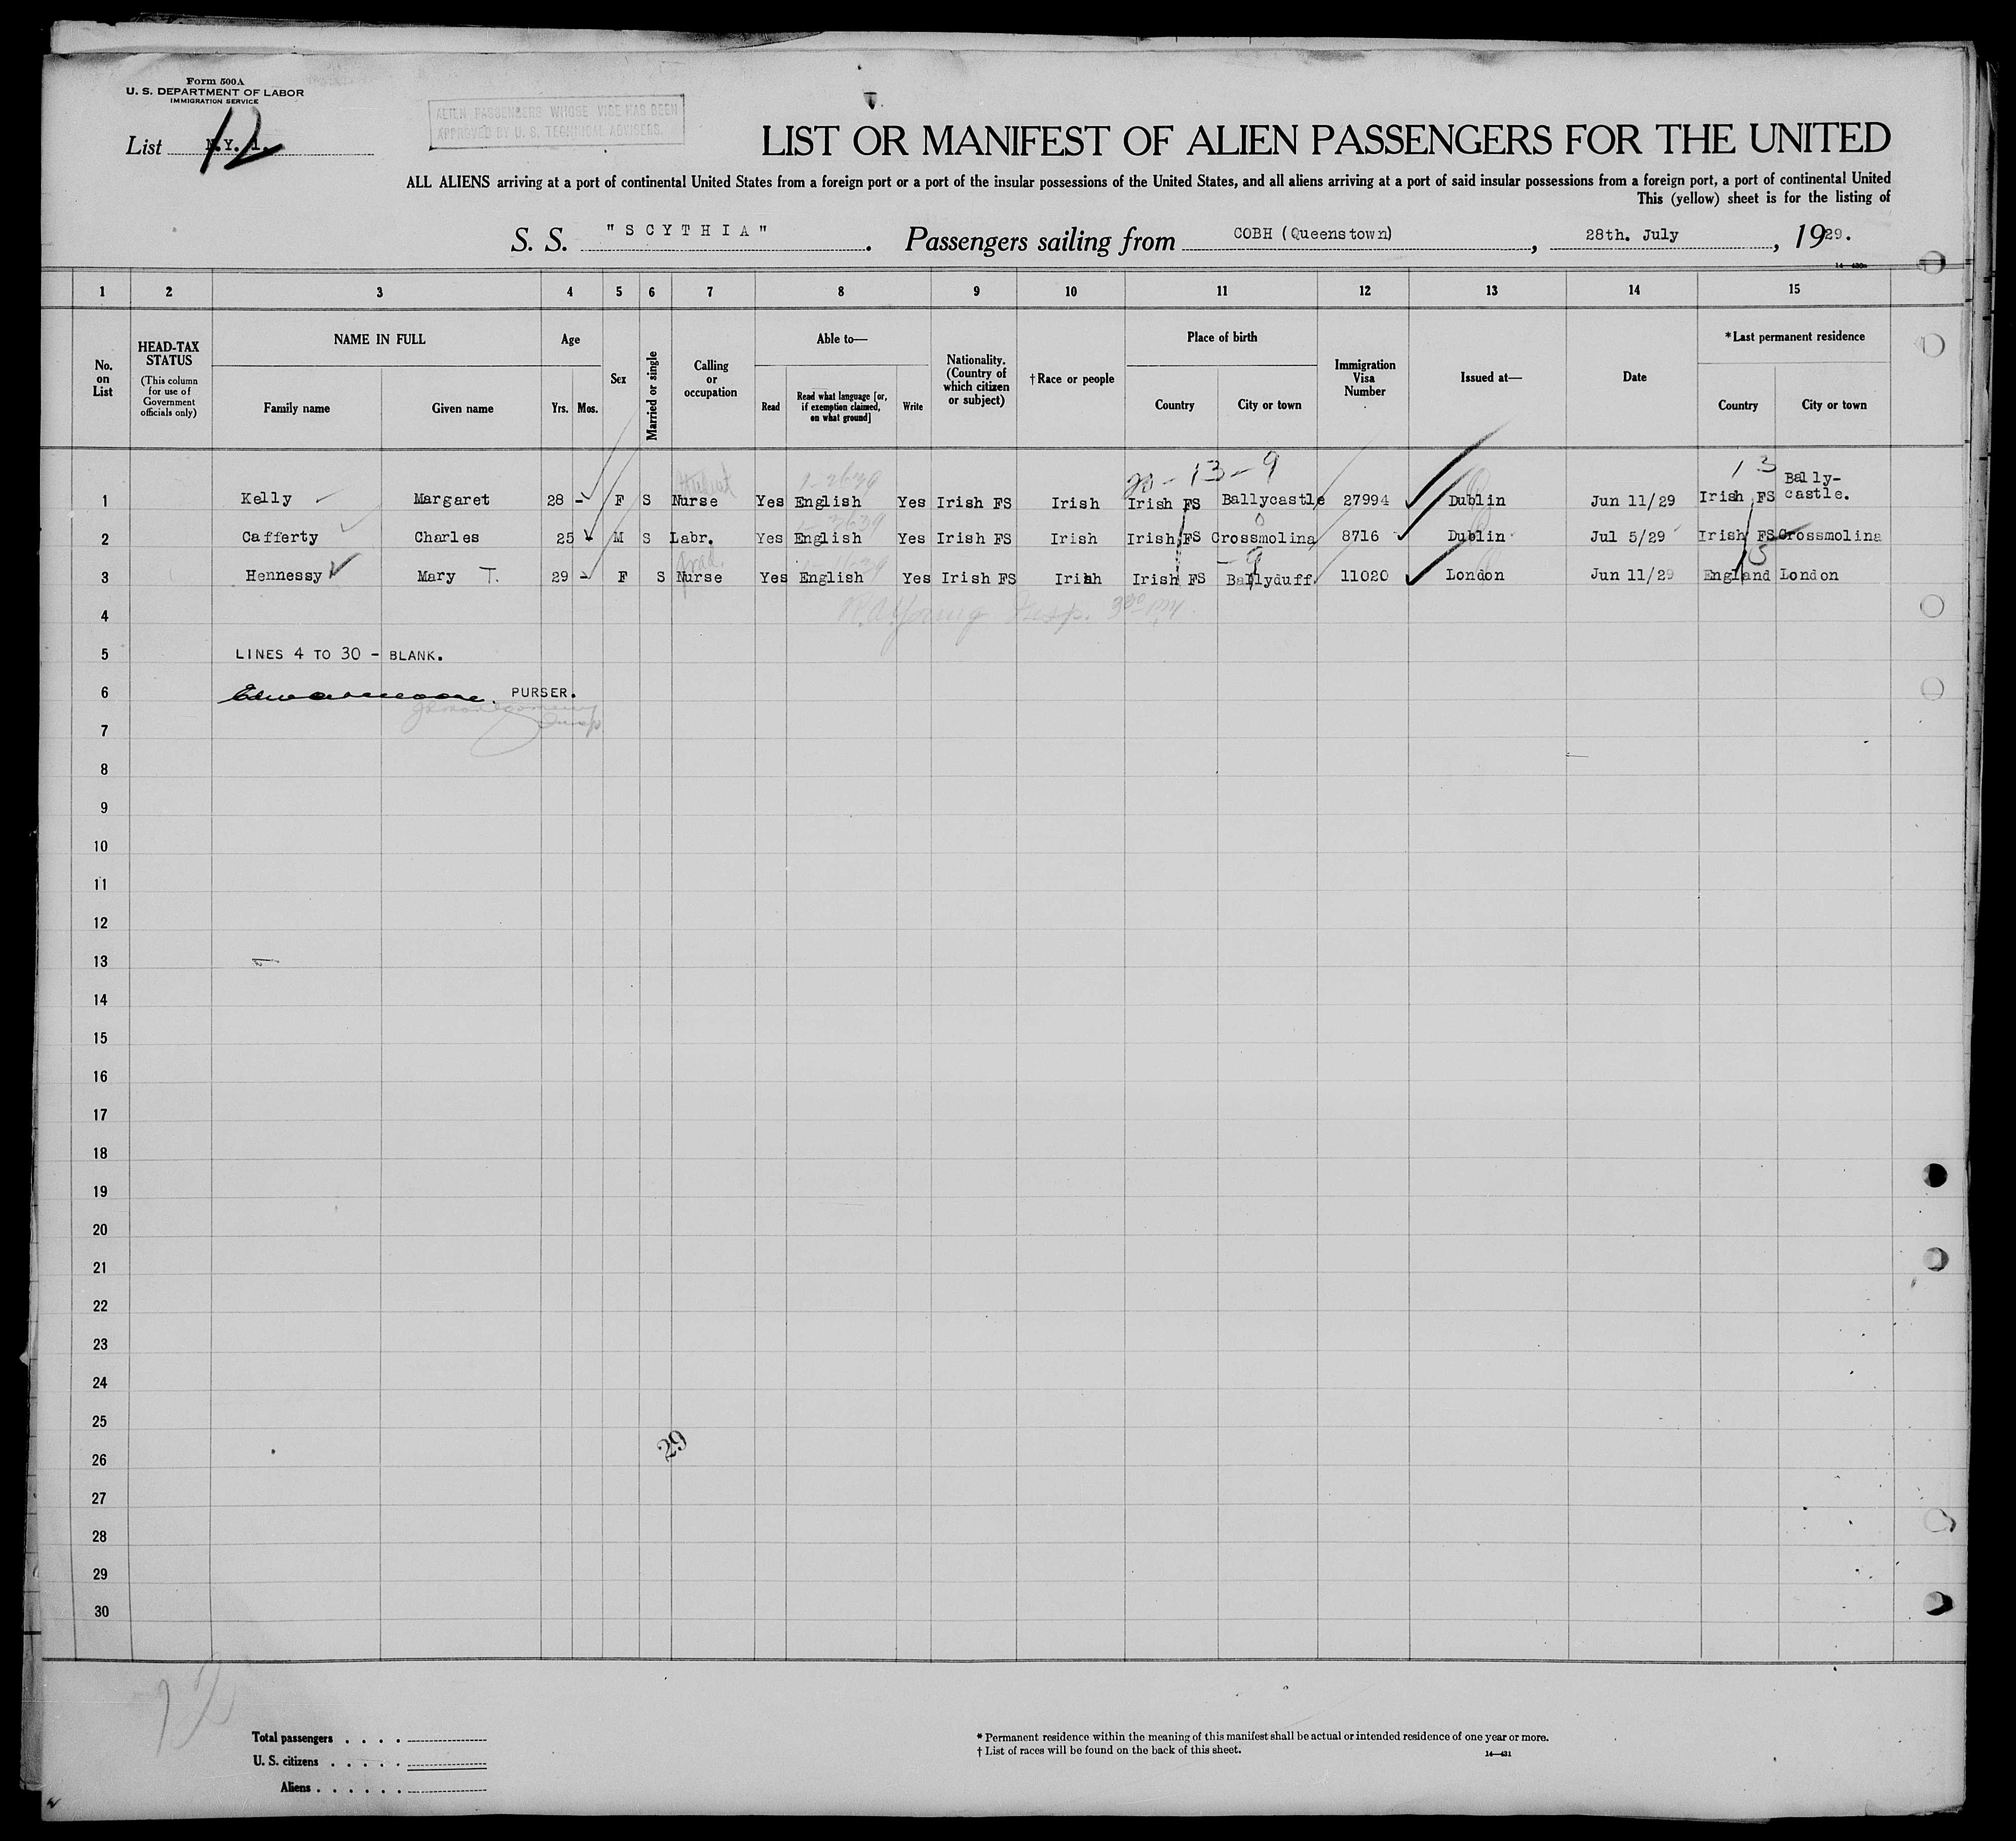 Form 500A
U. S. DEPARTMENT OF LABOR
IMMIGRATION SERVICE
List N.Y. 1. 12
ALIEN PASSENGERS WHOSE VISE HAS BEEN
APPROVED BY U. S. TECHNICAL ADVISERS.
LIST OR MANIFEST OF ALIEN PASSENGERS FOR THE UNITED
ALL ALIENS arriving at a port of continental United States from a foreign port or a port of the insular possessions of the United States, and all aliens arriving at a port of said insular possessions from a foreign port, a port of continental United
This (yellow) sheet is for the listing of
S. S. "SCYTHIA". Passengers sailing from COBH (Queenstown), 28th. July, 1929.
14—430a
1 2 3 4 5 6 7 8 9 10 11 12 13 14 15
No. on List
HEAD-TAX STATUS
(This column for use of Government officials only)
NAME IN FULL
Family name Given name
Age
Yrs. Mos.
Sex
Married or single
Calling or occupation
Able to—
Read Read what language [or, if exemption claimed, on what ground] Write
Nationality. (Country of which citizen or subject)
† Race or people
Place of birth
Country City or town
Immigration Visa Number
Issued at—
Date
*Last permanent residence
Country City or town
1-2639 13-9 13
1 Kelly Margaret 28 - F S Nurse Yes English Yes Irish FS Irish Irish FS Ballycastle 27994 Dublin Jun 11/29 Irish FS Bally-castle.
2 Cafferty Charles 25 M S Labr. Yes English Yes Irish FS Irish Irish FS Crossmolina 8716 Dublin Jul 5/29 Irish FS Crossmolina
grad. - 9 13
3 Hennessy Mary T. 29 - F S Nurse Yes English Yes Irish FS Irish Irish FS Ballyduff 11020 London Jun 11/29 England London
4
5 LINES 4 TO 30 - BLANK.
6 PURSER.
Insp.
7
8
9
10
11
12
13
14
15
16
17
18
19
20
21
22
23
24
25
29
26
27
28
29
30
12
Total passengers . . . .
U. S. citizens . . . . .
Aliens . . . . . .
* Permanent residence within the meaning of this manifest shall be actual or intended residence of one year or more.
† List of races will be found on the back of this sheet.
14—431